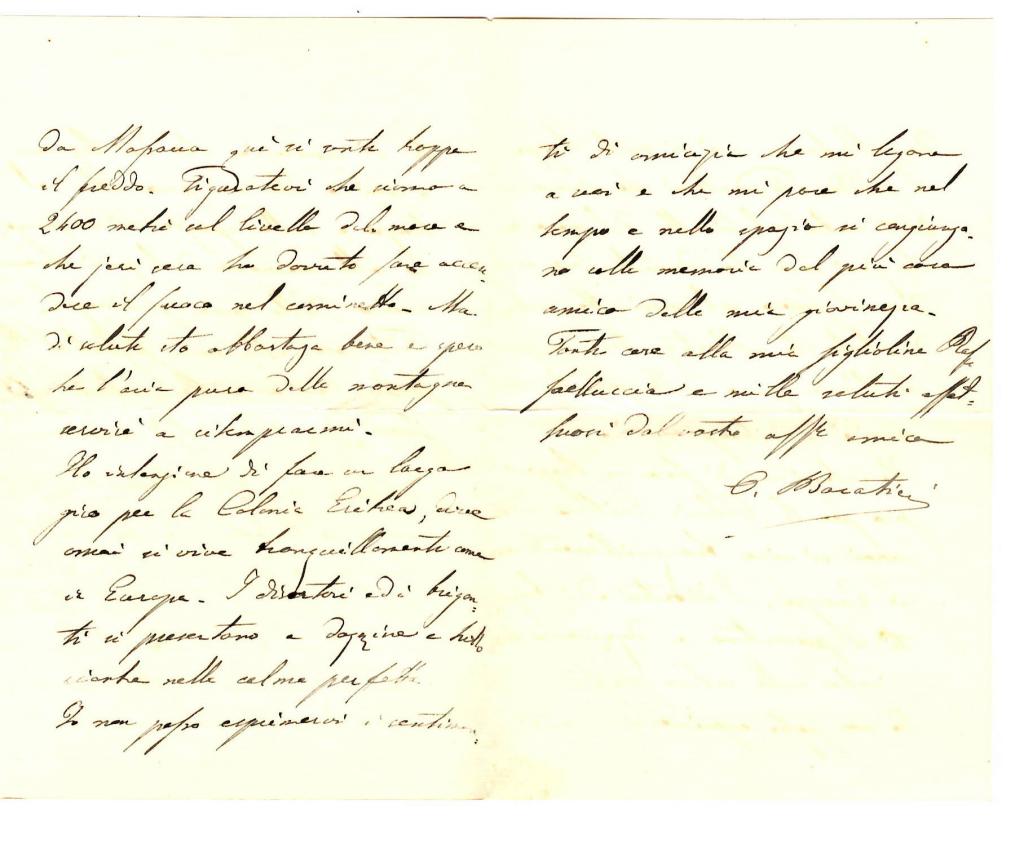 Da Massaua qui si sente troppo
il freddo. Figuratevi che siamo a
2400 metri sul livello del mare e
che jeri sera ho dovuto fare accen-
dere il fuoco nel caminetto. Ma
di salute sto abbastanza bene e spero
che l'aria pura delle montagne
servirà a ritemprarmi.
Ho intenzione di fare un largo
giro per la Colonia Eritrea, dove
omai si vive tranquillamente come
in Europa. I disertori ed i brigan-
ti si presentano a dozzine e tutto
rientra nella calma perfetta.
Io non posso esprimervi i sentimen-
ti di amicizia che mi legano
a voi e che mi pare che nel
tempo e nello spazio si congiunga-
no colla memoria del più caro
amico della mia giovinezza.
Tante cose alla mia figliolina Raf-
faelluccia e mille saluti affet-
tuosi dal vostro affo amico
O. Baratieri